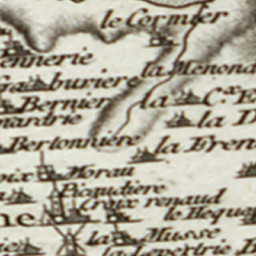 le Cormier
ennerie
la Menond
buriere
Bernier
la Cx. E
nardrie
la D
Bertonniere
la Fren
oix Morau
Picaudière
Croix renaud
le Hequa
ne
la Musse
la Levertrie B